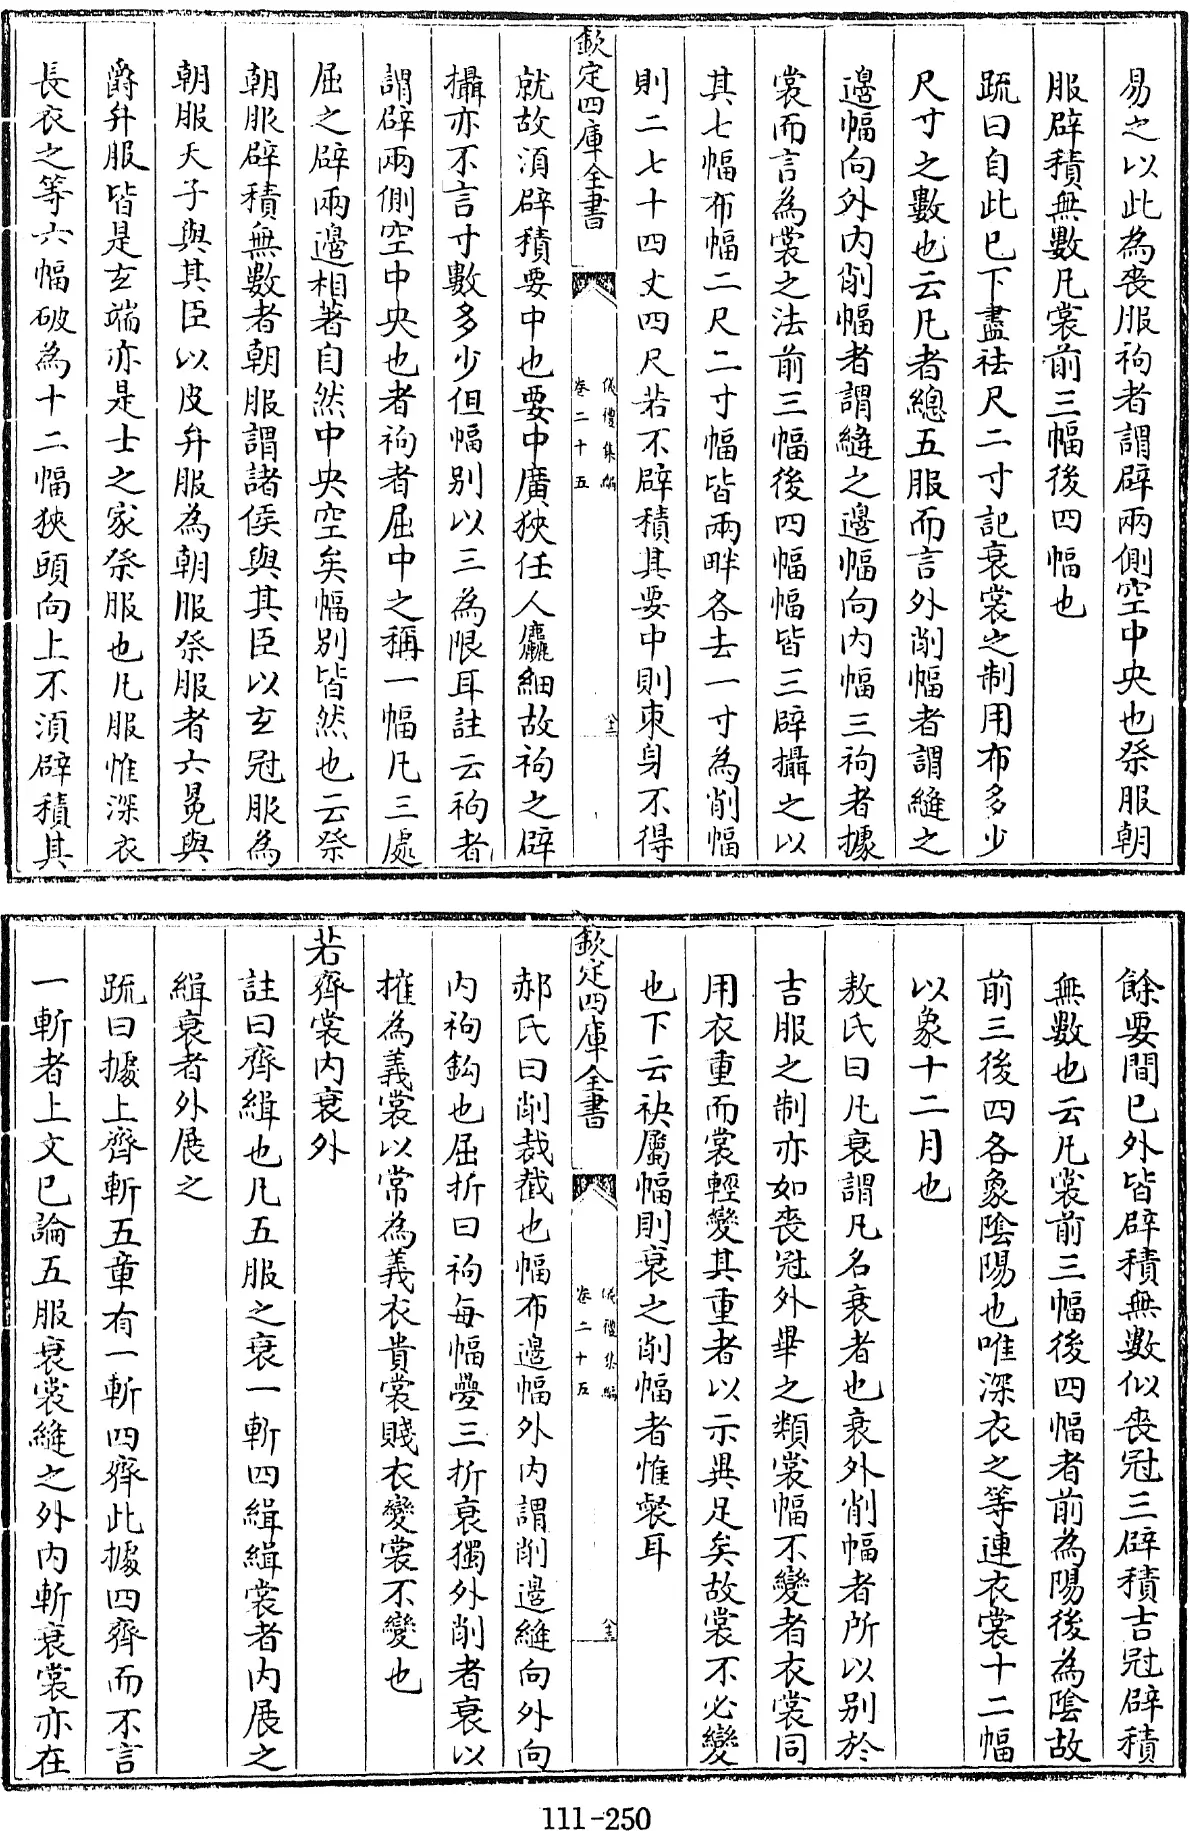 易之以此為喪服袧者謂辟兩側空中央也祭服朝
服辟積無數凡裳前三幅後四幅也
疏曰自此已下盡袪尺二寸記衰裳之制用布多少
尺寸之數也云凡者總五服而言外削幅者謂縫之
邊幅向外内削幅者謂縫之邊幅向内幅三袧者據
裳而言為裳之法前三幅後四幅幅皆三辟攝之以
其七幅布幅二尺二寸幅皆兩畔各去一寸為削幅
則二七十四丈四尺若不辟積其要中則束身不得
欽定四庫全書
儀禮集編
卷二十五
就故須辟積要中也要中廣狹任人麤細故袧之辟
攝亦不言寸數多少但幅别以三為限耳註云袧者
謂辟兩側空中央也者袧者屈中之稱一幅凡三處
屈之辟兩邊相著自然中央空矣幅别皆然也云祭
朝服辟積無數者朝服謂諸侯與其臣以玄冠服為
朝服天子與其臣以皮弁服為朝服祭服者六冕與
爵弁服皆是玄端亦是士之家祭服也凡服惟深衣
長衣之等六幅破為十二幅狹頭向上不須辟積其
餘要間已外皆辟積無數似喪冠三辟積吉冠辟積
無數也云凡裳前三幅後四幅者前為陽後為陰故
前三後四各象陰陽也唯深衣之等連衣裳十二幅
以象十二月也
敖氏曰凡衰謂凡名衰者也衰外削幅者所以别於
吉服之制亦如喪冠外畢之類裳幅不變者衣裳同
用衣重而裳輕變其重者以示異足矣故裳不必變
也下云袂屬幅則衰之削幅者惟裻耳
欽定四庫全書
儀禮集編
卷二十五
郝氏曰削裁截也幅布邊幅外内謂削邊縫向外向
内袧鈎也屈折曰袧每幅疊三折衰獨外削者衰以
摧為義裳以常為義衣貴裳賤衣變裳不變也
若齊裳内衰外
註曰齊緝也凡五服之衰一斬四緝緝裳者内展之
緝衰者外展之
疏曰據上齊斬五章有一斬四齊此據四齊而不言
一斬者上文已論五服衰裳縫之外内斬衰裳亦在
111-250